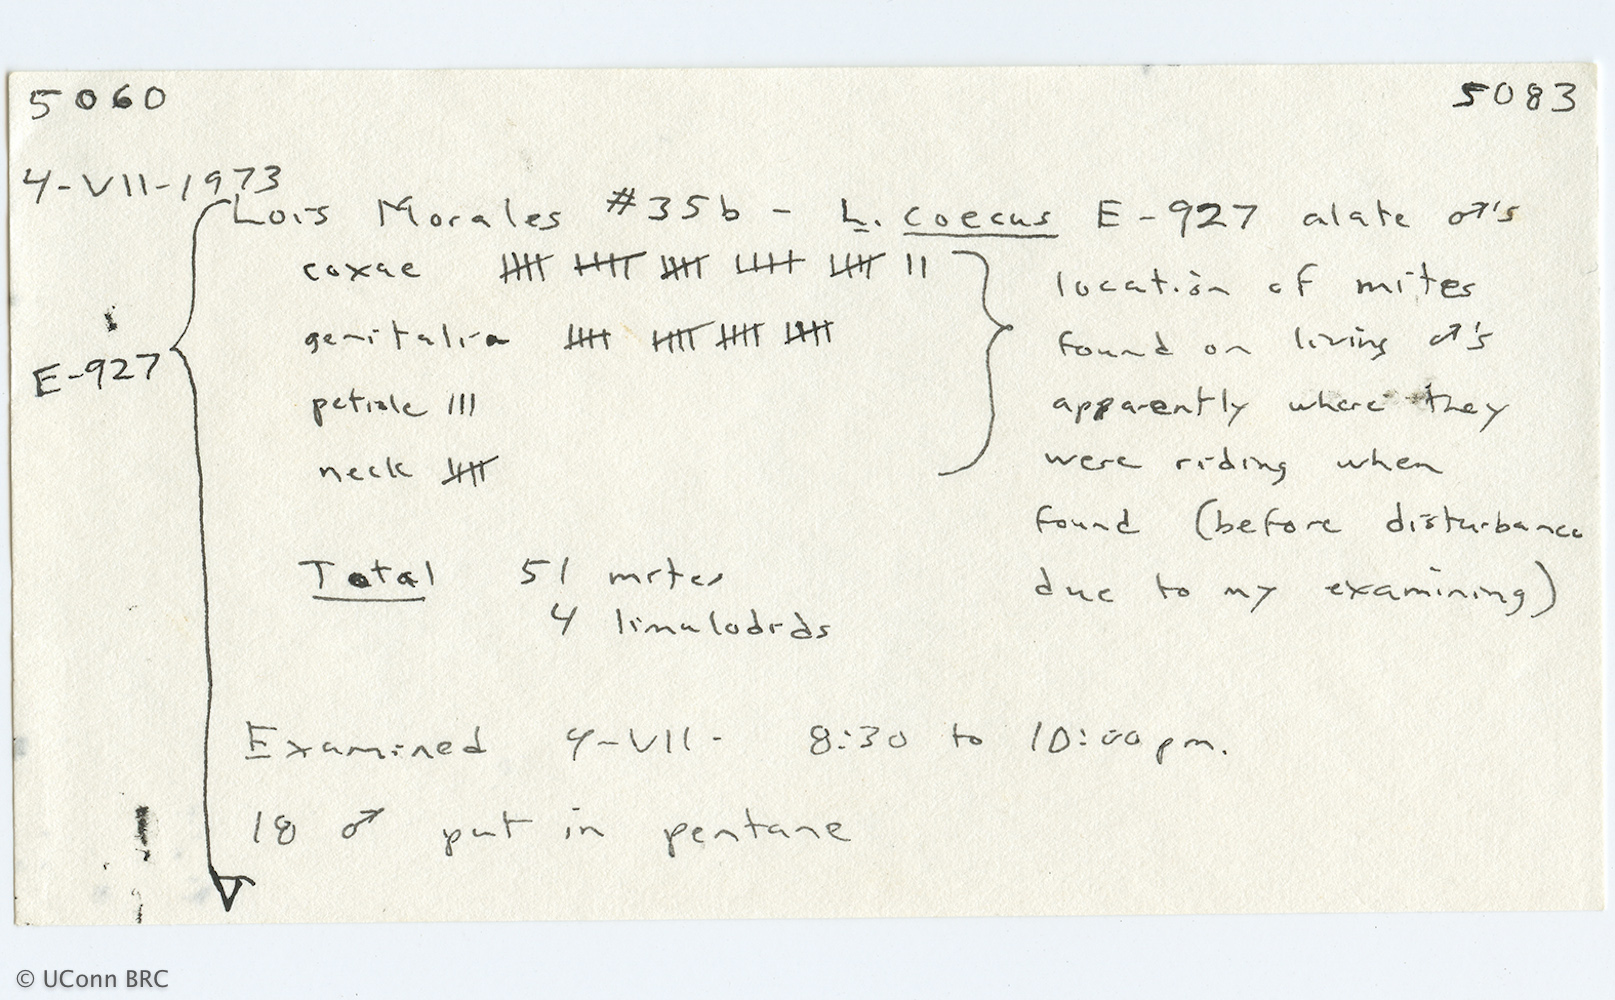 5060 5083
4-VII-1973
Lois Morales #35b - L. coecus E-927 alate ♂'s
coxae 卌 卌 卌 卌 卌 || location of mites
genitalia 卌 卌 卌 卌 found on living ♂'s
E-927
petiole ||| apparently where they
neck 卌 were riding when
found (before disturbance
Total 51 mites due to my examining)
4 limulodids
Examined 4-VII- 8:30 to 10:00 pm.
18 ♂ put in pentane
© UConn BRC